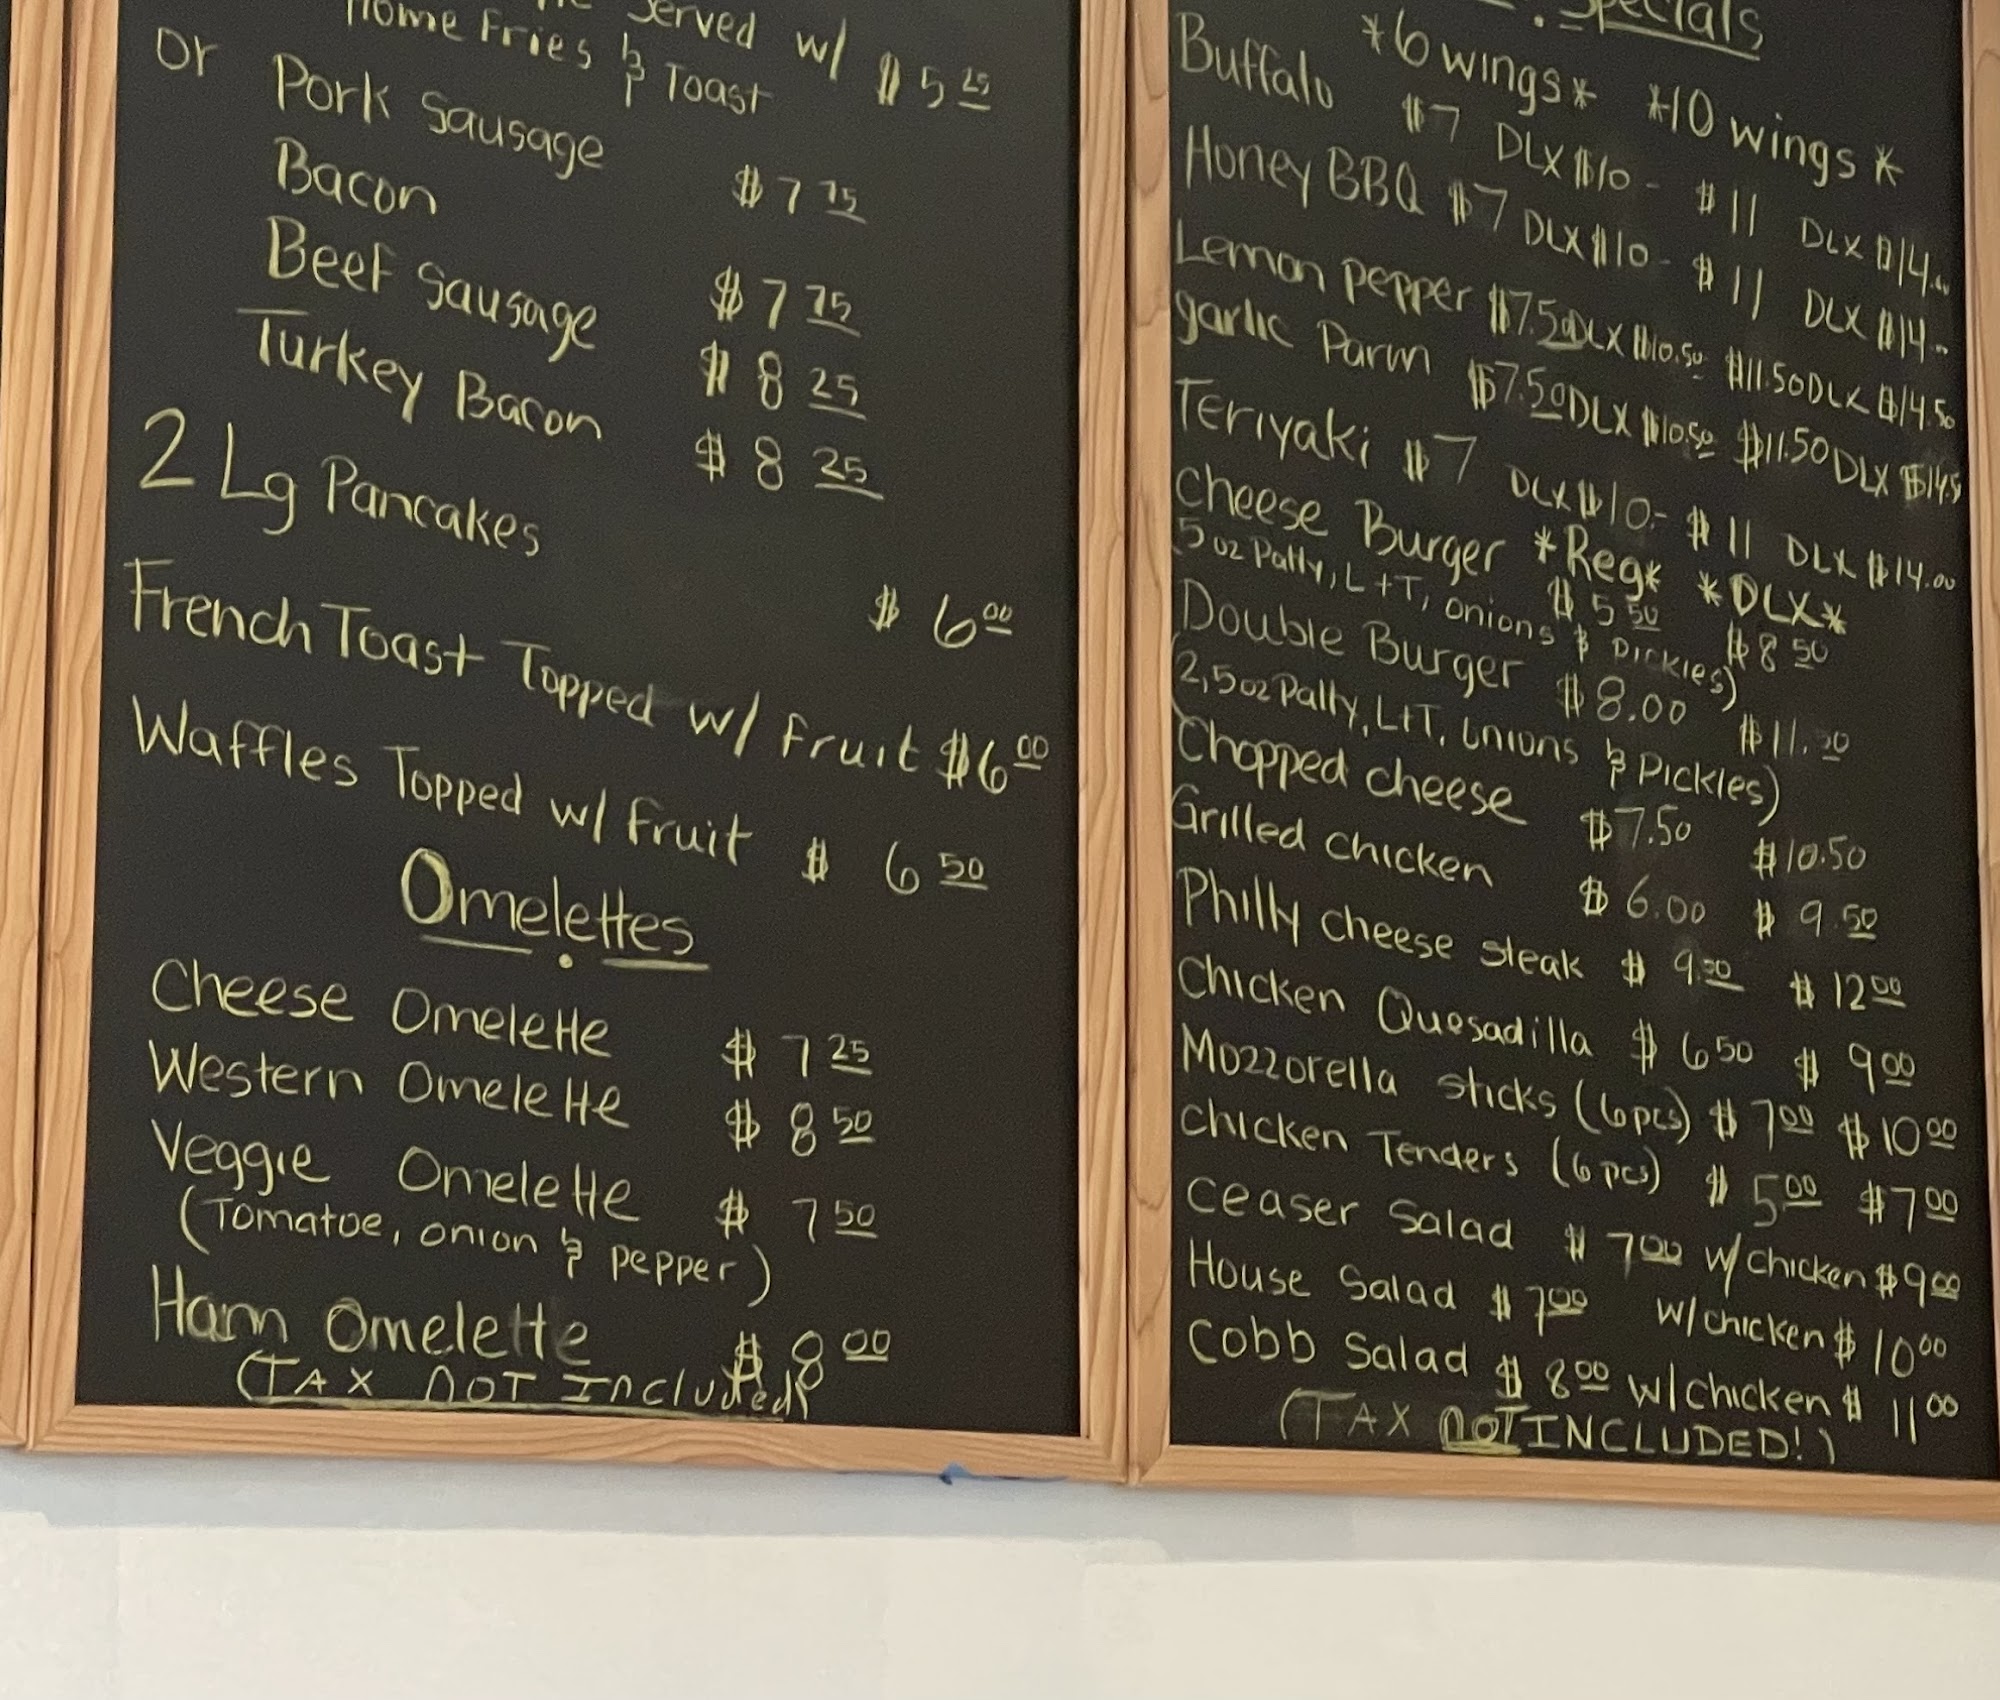 Served w/
Home Fries & Toast $5 25
or Pork Sausage $7 75
Bacon $7 75
Beef Sausage $8 25
Turkey Bacon $8 25
2 Lg Pancakes $6 00
French Toast Topped w/ Fruit $6 00
Waffles Topped w/ Fruit $6 50
Omelettes
Cheese Omelette $7 25
Western Omelette $8 50
Veggie Omelette $7 50
(Tomatoe, onion & pepper)
Ham Omelette $8 00
(TAX NOT Included)
Specials
*6 wings* *10 wings*
Buffalo $7 DLX $10 - $11 DLX $14.00
Honey BBQ $7 DLX $10 - $11 DLX $14
Lemon pepper $7.50 DLX $10.50 $11.50 DLX $14.50
garlic Parm $7.50 DLX $10.50 $11.50 DLX $14.5
Teriyaki $7 DLX $10 - $11 DLX $14.00
Cheese Burger *Reg* *DLX*
$5 50 $8 50
5 oz Patty, L+T, onions & Pickles)
Double Burger $8.00
(2, 5oz Patty, L+T, onions & Pickles)
Chopped cheese $7.50 $10.50
Grilled chicken $6.00 $9.50
Philly cheese steak $9.00 $12 00
Chicken Quesadilla $6 50 $9 00
Mozzorella sticks (6pcs) $7 00 $10 00
Chicken Tenders (6 pcs) $5 00 $7 00
Ceaser Salad $7 00 w/chicken $9 00
House Salad $7 00 w/chicken $10 00
Cobb Salad $8 00 w/chicken $11 00
(TAX NOT INCLUDED!)